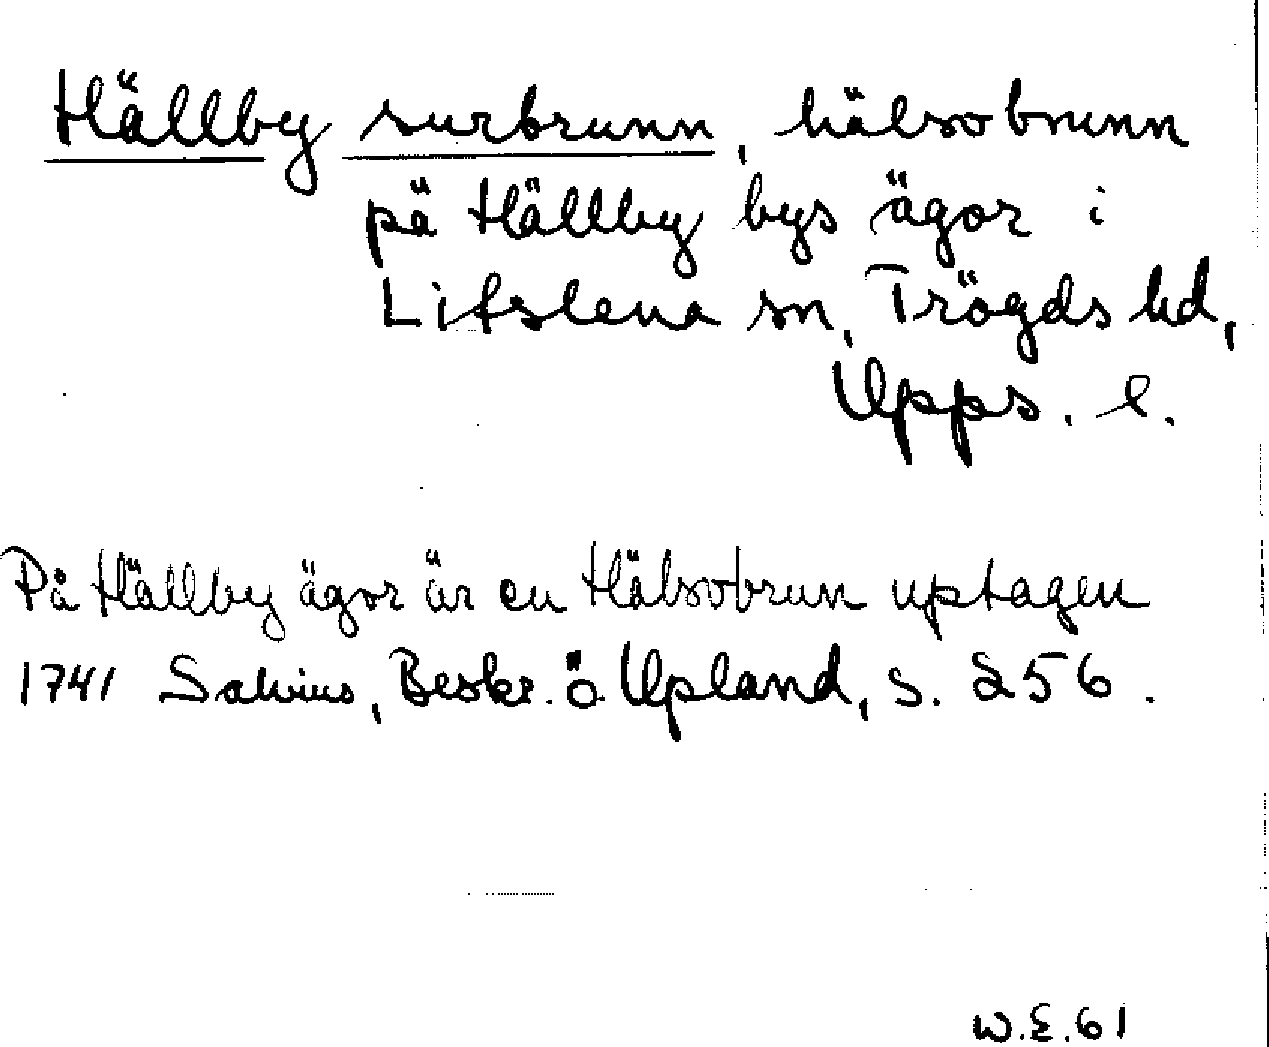 Hällby surbrunn, hälsobrunn
på Hällby bys ägor i
Litslena sn, Trögds hd,
Upps. l.
På Hällby ägor är en Hälsobrun uptagen
1741 Salvius, Beskr. ö. Upland, s. 256.
W.E.61